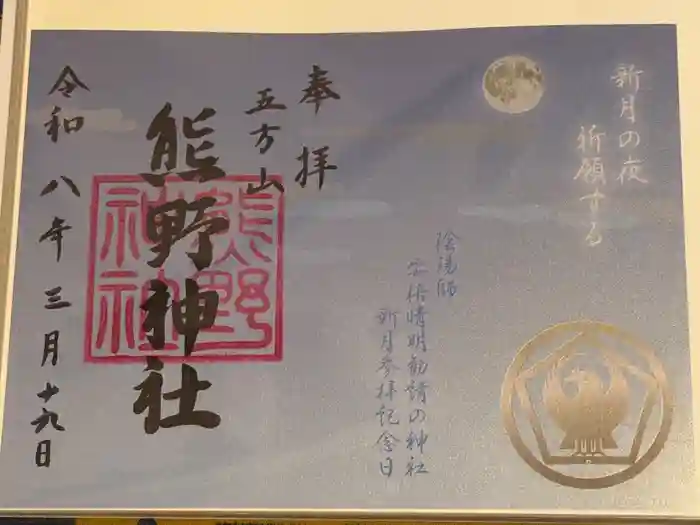 新月の夜
祈願する
陰陽師
安倍晴明勧請の神社
新月参拝記念日
奉拝
五方山
熊野神社
熊野
神社
令和八年三月十九日